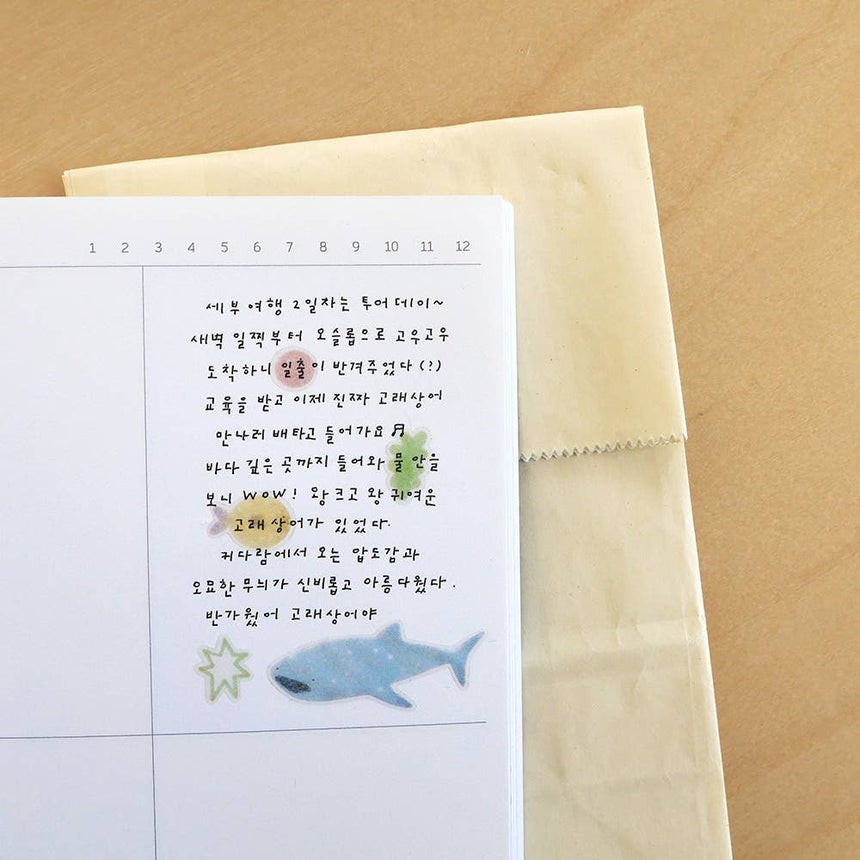 1 2 3 4 5 6 7 8 9 10 11 12
세부 여행 2일차는 투어데이~
새벽 일찍부터 오슬롭으로 고우고우
도착하니 일출이 반겨주었다(?)
교육을 받고 이제 진짜 고래상어
만나러 배타고 들어가요♬
바다 깊은 곳까지 들어와 물 안을
보니 WOW! 왕 크고 왕 귀여운
고래상어가 있었다.
커다람에서 오는 압도감과
오묘한 무늬가 신비롭고 아름다웠다.
반가웠어 고래상어야